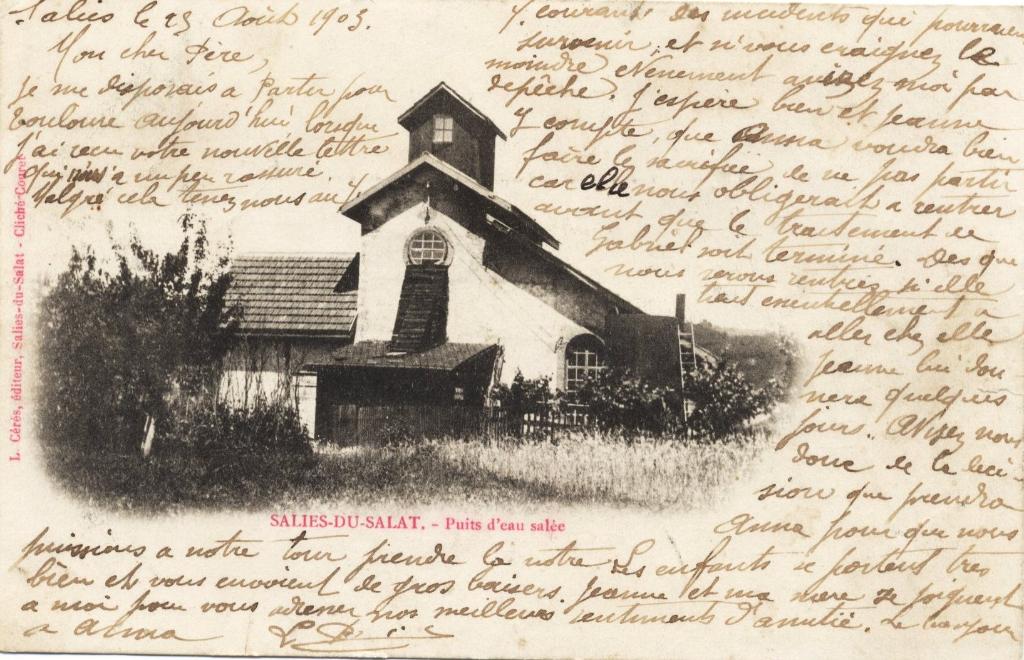 Salies le 23 Août 1903.
Mon cher Père,
Je me disposais a Partir pour
Toulouse aujourd'hui lorsque
j'ai reçu votre nouvelle lettre
qui m'a un peu rassuré.
Malgré cela tenez nous au
courant des incidents qui pourraient
survenir, et si vous craignez le
moindre Evenement avisez moi par
depêche. J'espère bien et Jeanne
y compte, que Anna voudra bien
faire le sacrifice de ne pas partir
car cela nous obligerait a rentrer
avant que le traitement de
Gabriel soit terminé. Des que
nous serons rentrés, si elle
tient essentiellement a
aller chez elle
Jeanne lui don
nera quelques
jours. Avisez nous
donc de la deci
sion que prendra
Anna pour que nous
puissions a notre tour prendre la notre. Les enfants se portent tres
bien et vous envoient de gros baisers. Jeanne et ma mere se joignent
a moi pour vous adresser nos meilleurs sentiments d'amitié. Le bonjour
a Anna
L. Cérès, éditeur, Salies-du-Salat - Cliché Couret
SALIES-DU-SALAT. - Puits d'eau salée